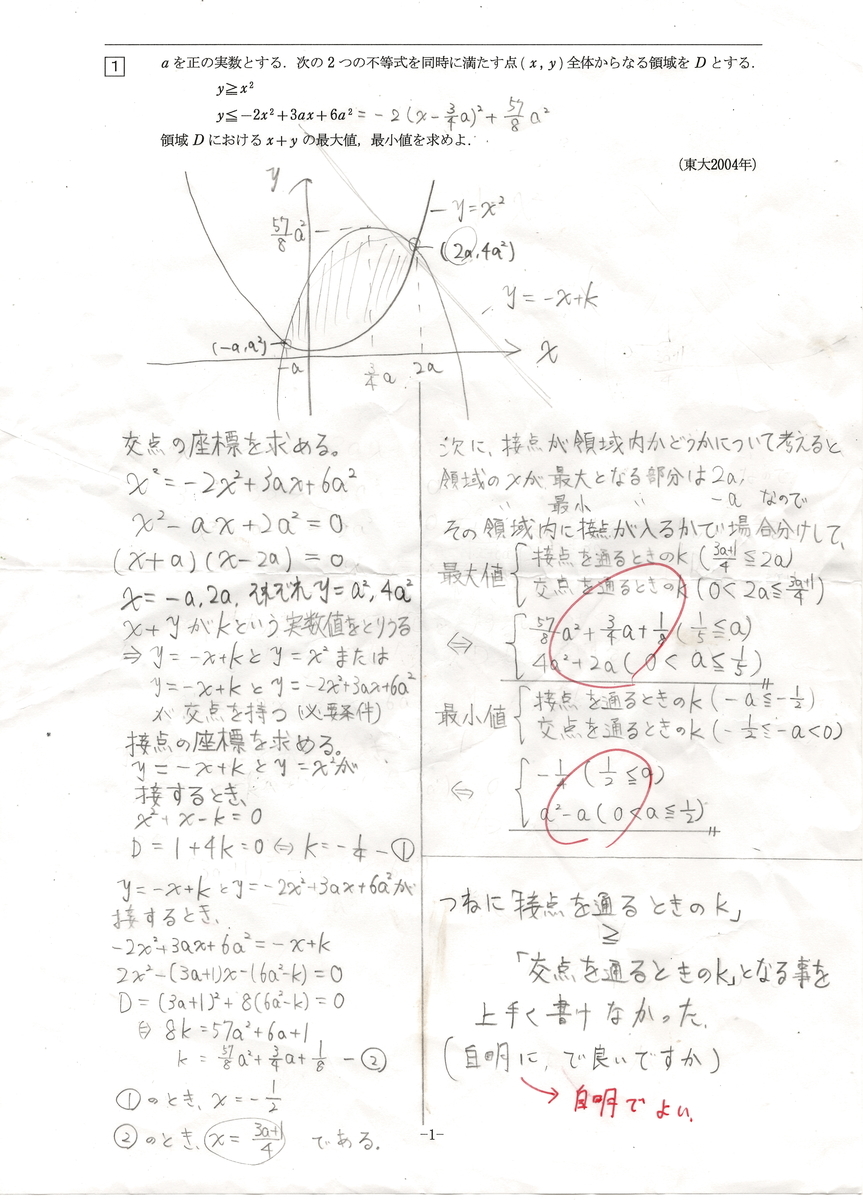 1
aを正の実数とする．次の2つの不等式を同時に満たす点(x, y)全体からなる領域をDとする．
y≧x²
y≦−2x²+3ax+6a² = −2(x−3/4a)²+57/8a²
領域Dにおけるx+yの最大値，最小値を求めよ．
(東大2004年)
y
57/8a²
y=x²
(2a,4a²)
y=−x+k
(−a,a²)
−a
3/4a
2a
x
交点の座標を求める。
x²=−2x²+3ax+6a²
x²−ax+2a²=0
(x+a)(x−2a)=0
x=−a,2a,それぞれy=a²,4a²
x+yがkという実数値をとりうる
⇒y=−x+kとy=x²または
y=−x+kとy=−2x²+3ax+6a²
が交点を持つ(必要条件)
接点の座標を求める。
y=−x+kとy=x²が
接するとき、
x²+x−k=0
D=1+4k=0⇔k=−1/4 −①
y=−x+kとy=−2x²+3ax+6a²が
接するとき、
−2x²+3ax+6a²=−x+k
2x²−(3a+1)x−(6a²−k)=0
D=(3a+1)²+8(6a²−k)=0
⇔8k=57a²+6a+1
k=57/8a²+3/4a+1/8 −②
①のとき、x=−1/2
②のとき、x=3a+1/4 である。
次に、接点が領域内かどうかについて考えると
領域のxが最大となる部分は2a,
〃 最小 〃 −a なので
その領域内に接点が入るかで場合分けして、
最大値
接点を通るときのk(3a+1/4≦2a)
交点を通るときのk(0<2a≦3a+1/4)
⇔
57/8a²+3/4a+1/8(1/5≦a)
4a²+2a(0<a≦1/5)
最小値
接点を通るときのk(−a≦−1/2)
交点を通るときのk(−1/2≦−a<0)
⇔
−1/4(1/2≦a)
a²−a(0<a≦1/2)
つねに「接点を通るときのk」
≧
「交点を通るときのk」となる事を
上手く書けなかった.
(自明に、で良いですか)
→自明でよい.
−1−